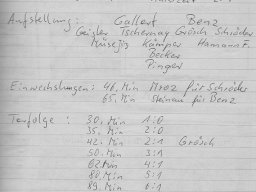 Aufstellung: Gallert Benz
Geigler Tschernay Grösch Schröder
Müsejig Kämper Hamann F.
Becker
Pinger
Einwechslungen: 46. Min für Schröder
65. Min Steinau für Benz
Torfolge: 30. Min 1:0
35. Min 2:0
42. Min 2:1 Grösch
50. Min 3:1
62. Min 4:1
80. Min 5:1
89. Min 6:1